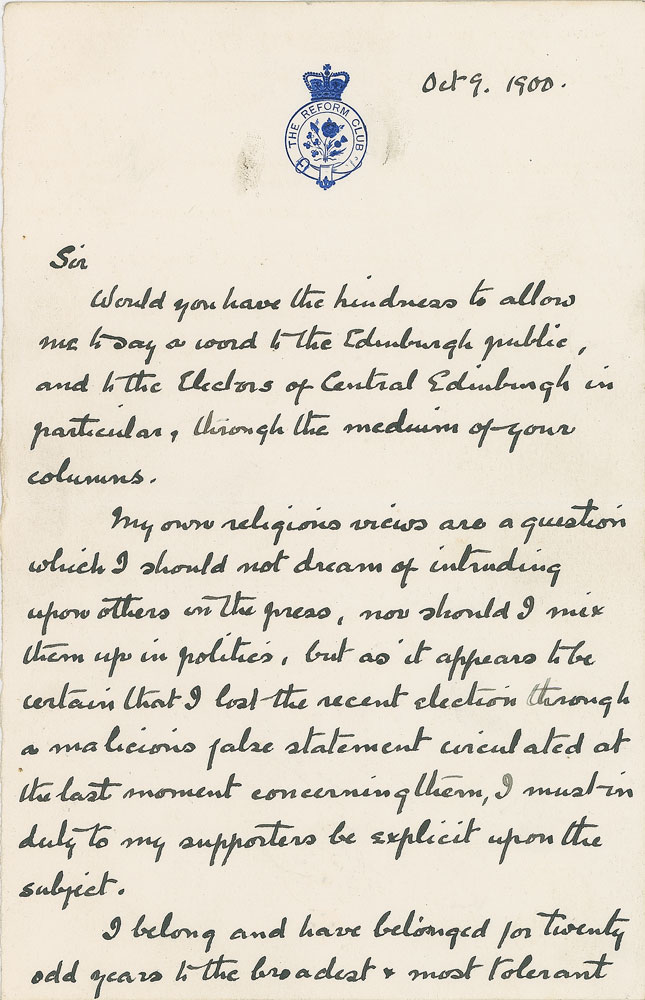 Oct 9. 1900.
THE REFORM CLUB
Sir
Would you have the kindness to allow
me to say a word to the Edinburgh public,
and to the Electors of Central Edinburgh in
particular, through the medium of your
columns.
My own religious views are a question
which I should not dream of intruding
upon others in the press, nor should I mix
them up in politics, but as it appears to be
certain that I lost the recent election through
a malicious false statement circulated at
the last moment concerning them, I must in
duty to my supporters be explicit upon the
subject.
I belong and have belonged for twenty
odd years to the broadest & most tolerant